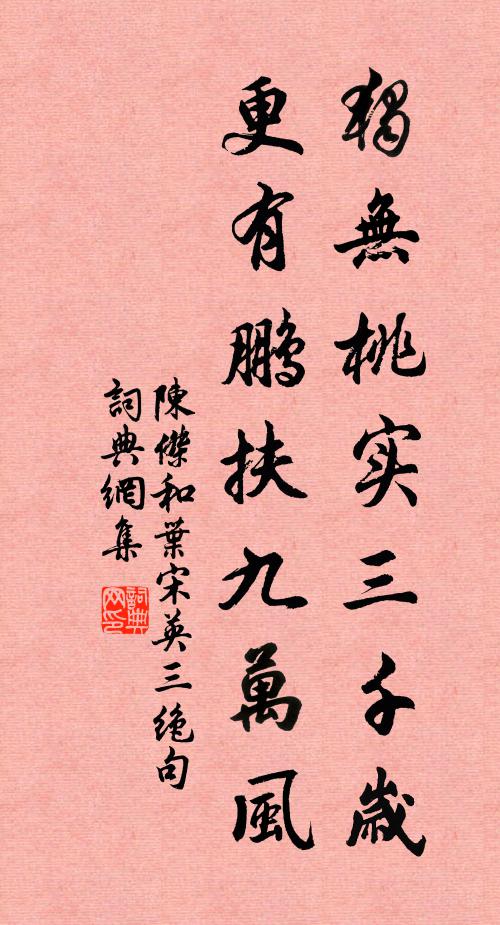 獨無桃实三千歲
更有鵬扶九萬風
陳傑和葉宋英三絶句
詞典網集
詞典网印